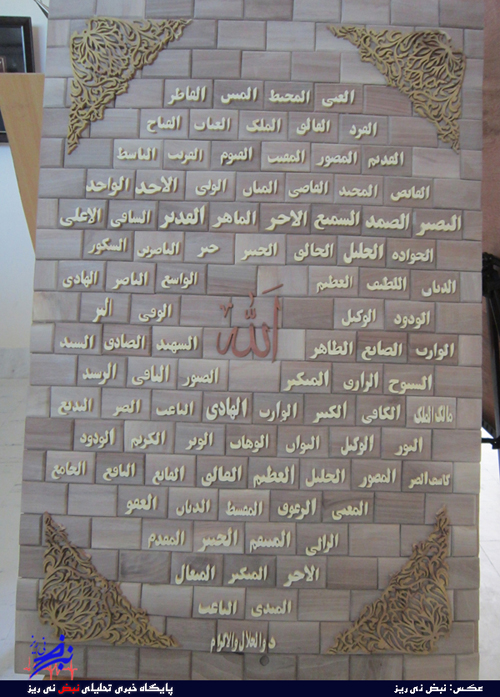 الغنی المحیط الفاطر
الفرد الفالق الملک الفتاح
القدیم المصور المقیت القیوم القریب الباسط
القابض المجید القاضی المنان الولی الاحد الواحد
البصیر الصمد السمیع الاخر الماهر القدیر الشافی الاعلی
الجلیل الخالق خیر الناصرین الشکور
الدیان اللطیف العظیم الواسع الناصر الهادی
الودود الوکیل الوفی البر
الله
الوارث الصانع الظاهر الشهید الصادق السید
السبوح الرازق المتکبر الصبور الباقی الرشید
مالک الملک الکافی الکبیر الوارث الهادی الباعث البدیع
النور الوکیل التواب الوهاب الوتر الکریم الودود
کاشف الضر المصور الجلیل العظیم الخالق النافع الجامع
الرءوف المقسط الدیان العفو
المقدم
الاخر المتکبر المتعال
المبدی الباعث
ذوالجلال والاکرام
عکس: نبض نی ریز
پایگاه خبری تحلیلی نبض نی ریز